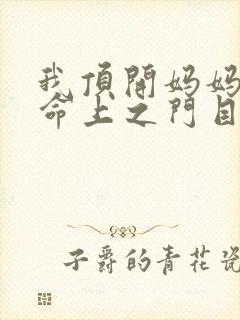 我頂開媽媽
命上之門目
子爵的青花瓷